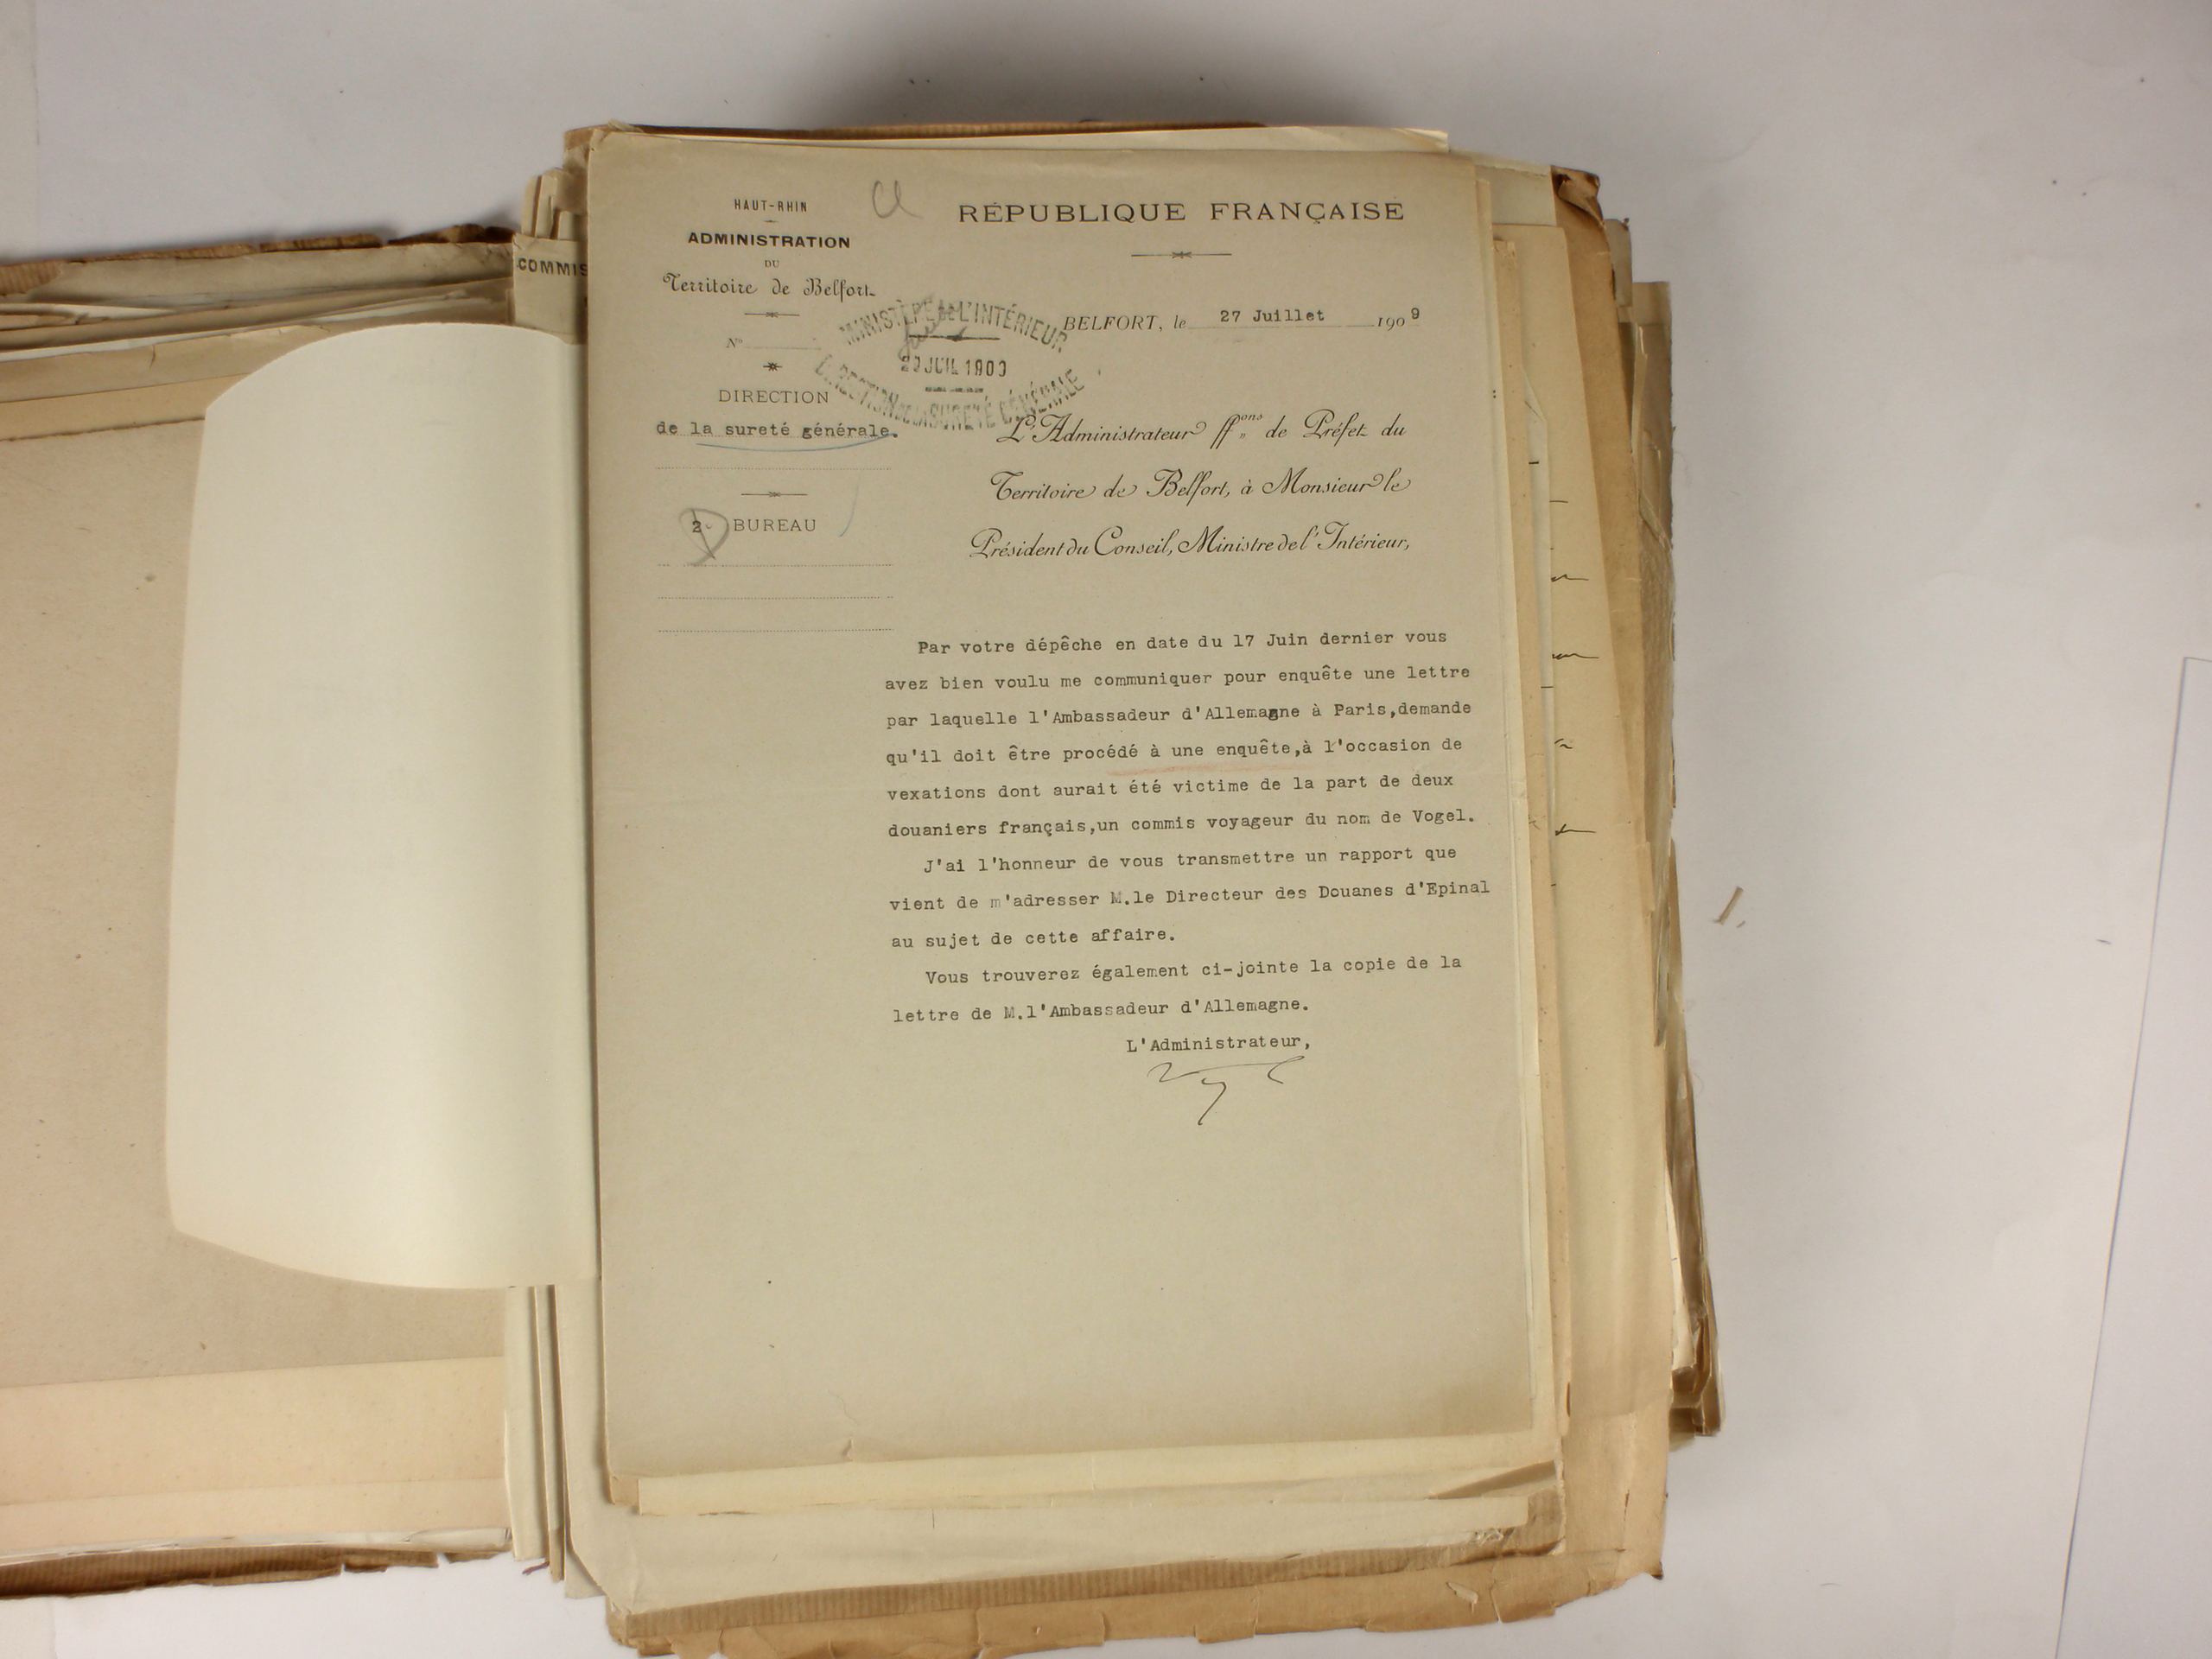 COMMIS
HAUT-RHIN
ADMINISTRATION
DU
Territoire de Belfort
N°
DIRECTION
de la sureté générale.
2e BUREAU
Cl
RÉPUBLIQUE FRANÇAISE
MINISTÈRE DE L'INTÉRIEUR
JUIL 1909
DIRECTION DE LA SURETÉ GÉNÉRALE
BELFORT, le 27 Juillet 1909
L'Administrateur ffons de Préfet du
Territoire de Belfort, à Monsieur le
Président du Conseil, Ministre de l'Intérieur,
Par votre dépêche en date du 17 Juin dernier vous
avez bien voulu me communiquer pour enquête une lettre
par laquelle l'Ambassadeur d'Allemagne à Paris,demande
qu'il doit être procédé à une enquête,à l'occasion de
vexations dont aurait été victime de la part de deux
douaniers français,un commis voyageur du nom de Vogel.
J'ai l'honneur de vous transmettre un rapport que
vient de m'adresser M.le Directeur des Douanes d'Epinal
au sujet de cette affaire.
Vous trouverez également ci-jointe la copie de la
lettre de M.l'Ambassadeur d'Allemagne.
L'Administrateur,